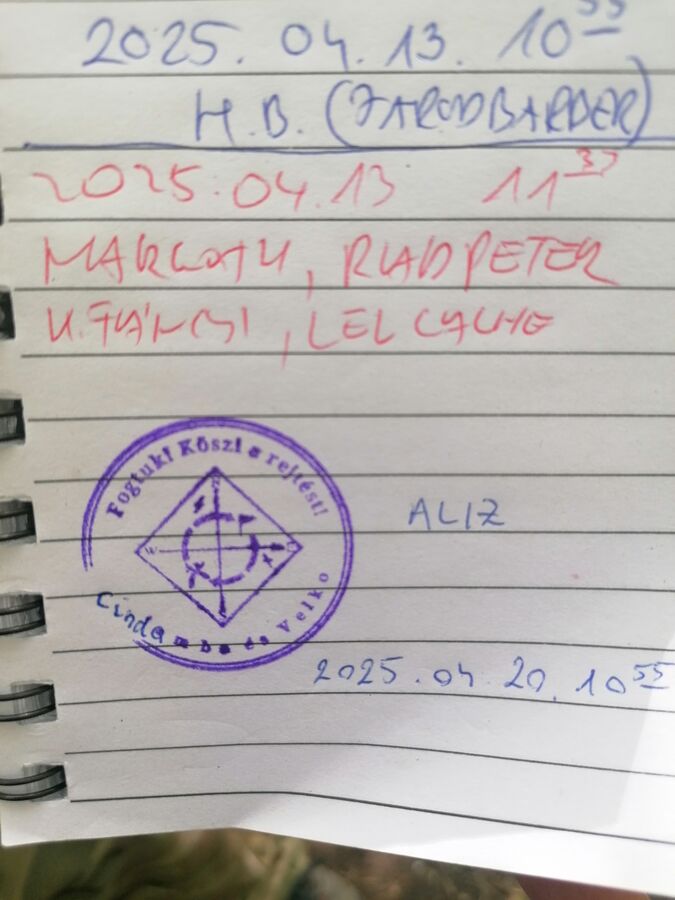 2025. 04. 13. 10 55
H.B. (ZARODBARBER)
2025.04.13 11 37
LELCACHE
Fogtuk! Köszi a rejtést!
ALIZ
Cindamba és Velko
2025.04 20. 10 55